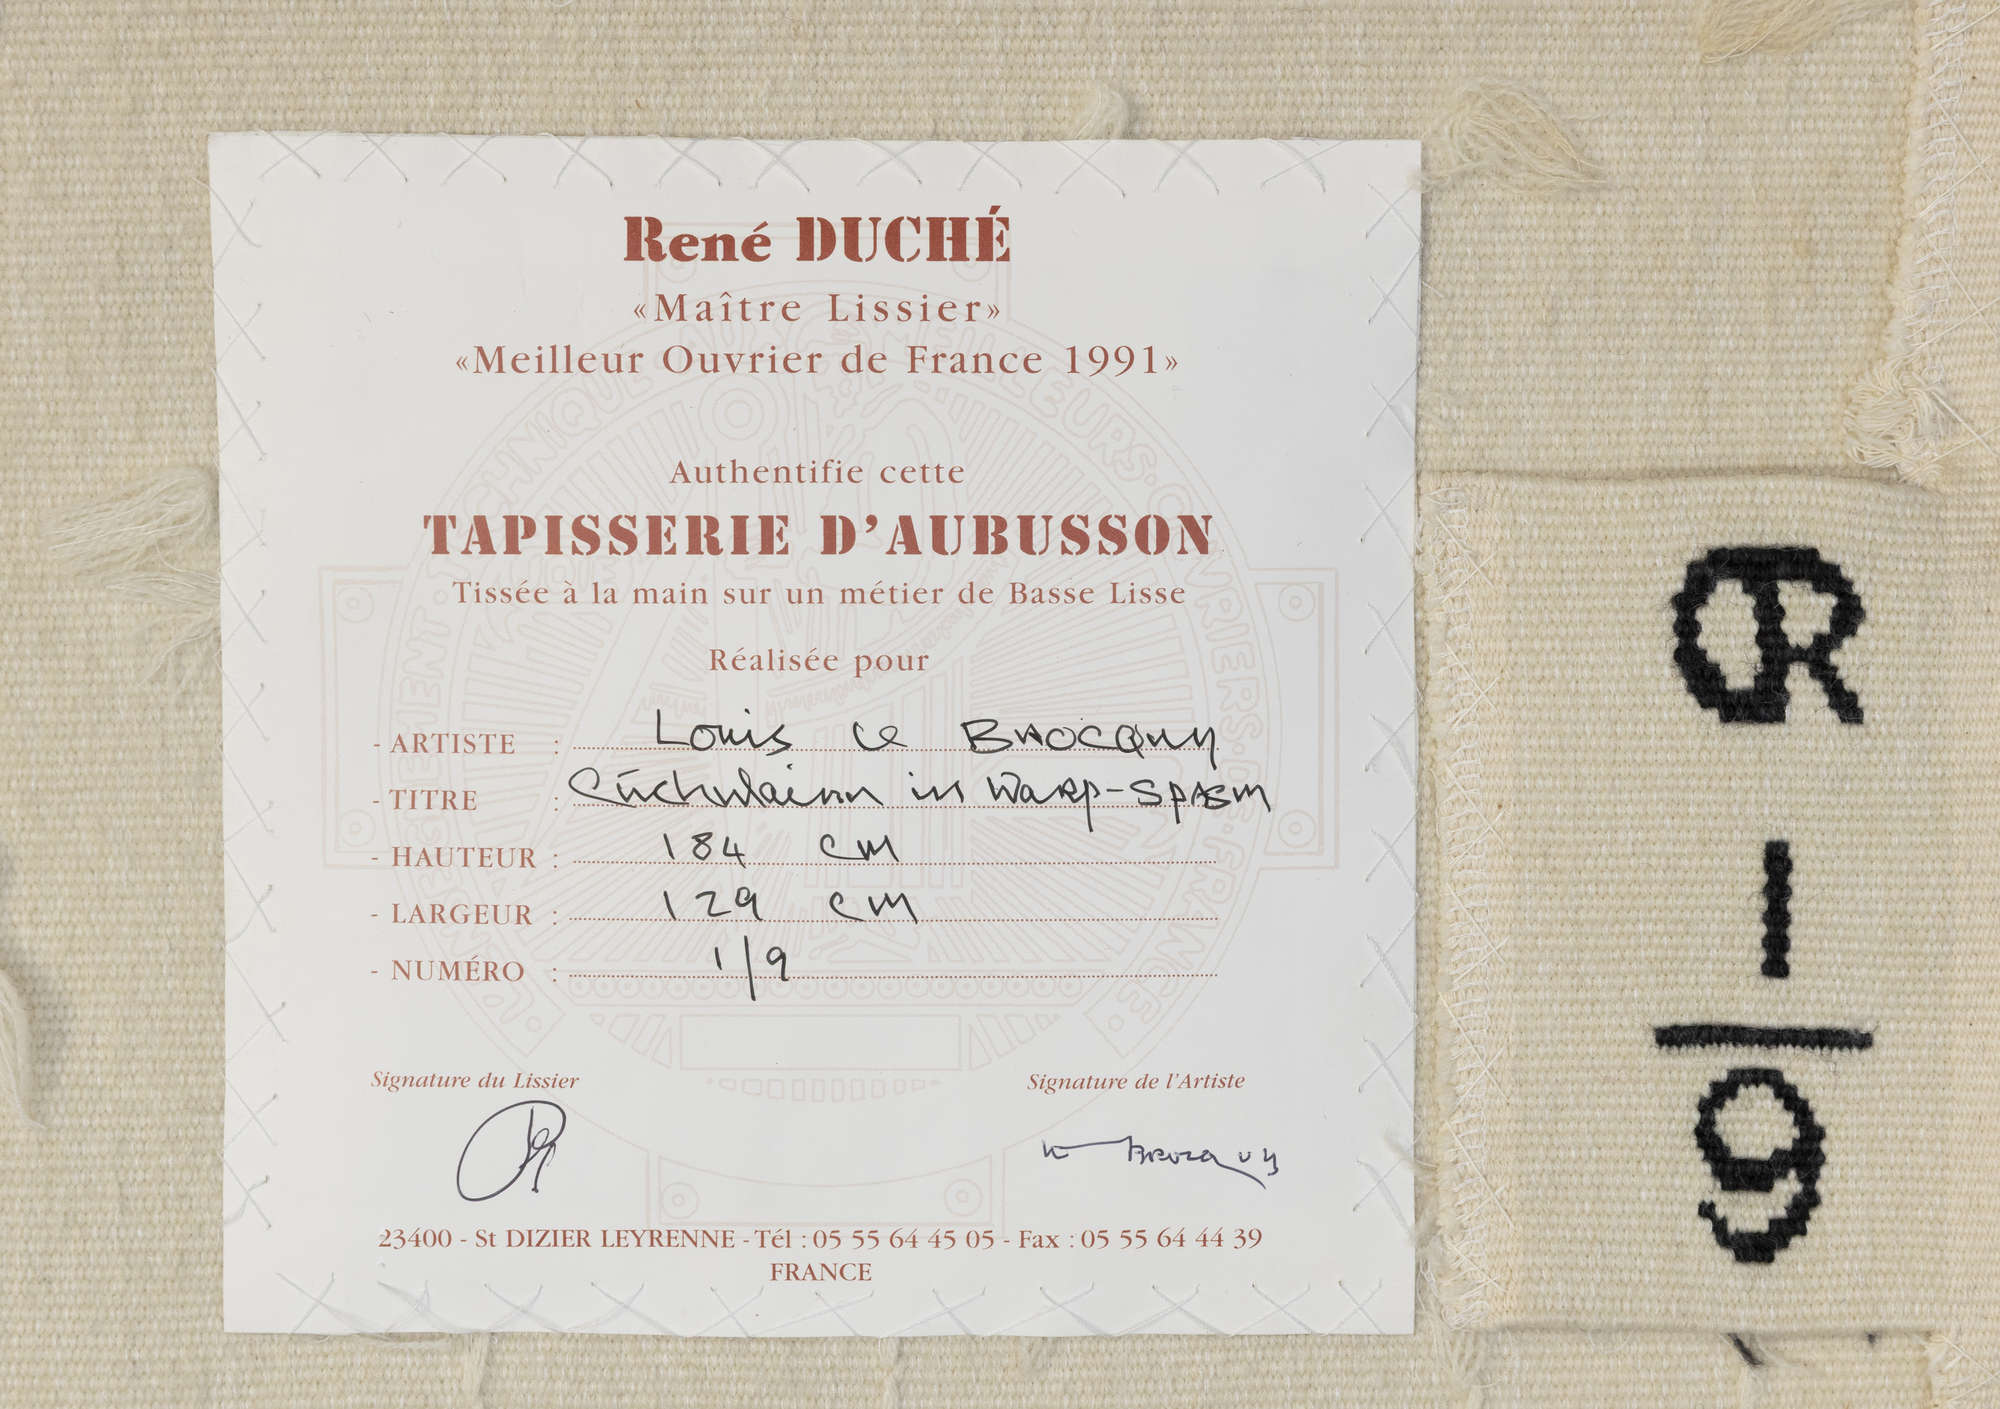 René DUCHÉ
«Maître Lissier»
«Meilleur Ouvrier de France 1991»
Authentifie cette
TAPISSERIE D'AUBUSSON
Tissée à la main sur un métier de Basse Lisse
Réalisée pour
- ARTISTE : Louis le Brocquy
- TITRE : Cúchulainn in Warp-Spasm
- HAUTEUR : 184 cm
- LARGEUR : 129 cm
- NUMÉRO : 1/9
Signature du Lissier
Signature de l'Artiste
le Brocquy
23400 - St DIZIER LEYRENNE - Tél : 05 55 64 45 05 - Fax : 05 55 64 44 39
FRANCE
1
9